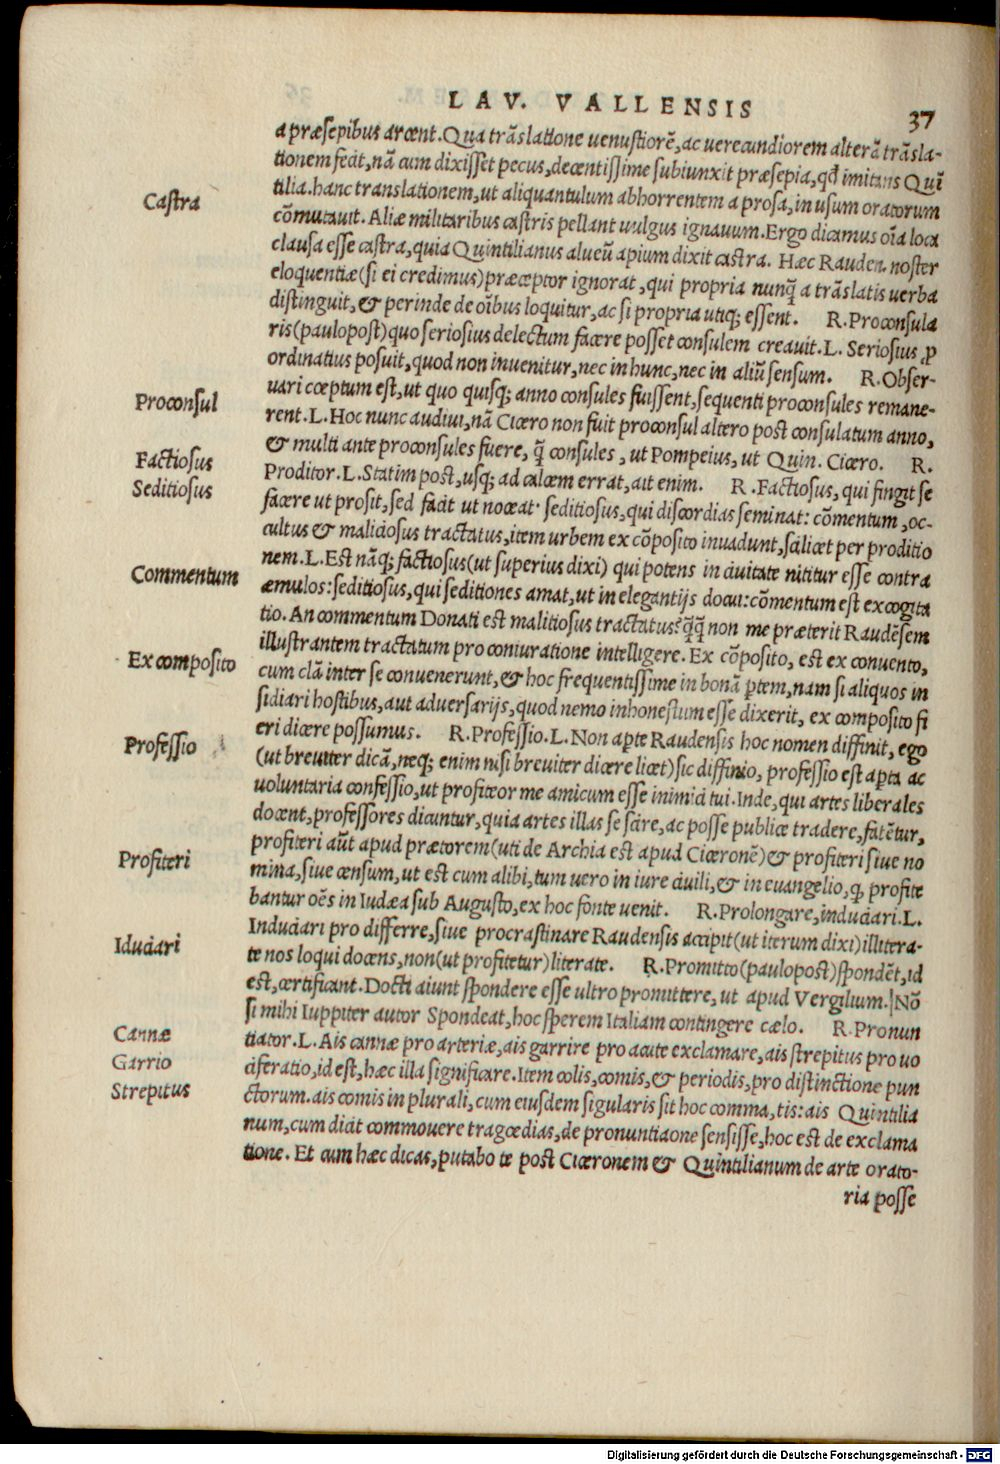 LAV. VALLENSIS
37
a præsepibus arcent. Qua trãslatione uenustiorẽ, ac uerecundiorem alterã trãsla-
tionem fecit, nã cum dixisset pecus, decentissime subiunxit præsepia, qđ imitans Quĩ
tilia. hanc translationem, ut aliquantulum abhorrentem a prosa, in usum oratorum
Castra
cõmutauit. Aliæ militaribus castris pellant uulgus ignauum. Ergo dicamus oĩa loca
clausa esse castra, quia Quintilianus alueũ apium dixit castra. Hæc Rauden. noster
eloquentiæ (si ei credimus) præceptor ignorat, qui propria nunq̃ a trãslatis uerba
distinguit, & perinde de oĩbus loquitur, ac si propria utiq; essent. R. Proconsula
ris (paulopost) quo seriosius delectum facere posset consulem creauit. L. Seriosius ꝓ
ordinatius posuit, quod non inuenitur, nec in hunc, nec in aliũ sensum. R. Obser-
Proconsul
uari cœptum est, ut quo quisq; anno consules fuissent, sequenti proconsules remane-
rent. L. Hoc nunc audiui, nã Cicero non fuit proconsul altero post consulatum anno,
& multi ante proconsules fuere, q̃ consules, ut Pompeius, ut Quin. Cicero. R.
Factiosus
Proditor. L. Statim post, usq; ad calcem errat, ait enim. R. Factiosus, qui fingit se
Seditiosus
facere ut prosit, sed facit ut noceat: seditiosus, qui discordias seminat: cõmentum, oc-
cultus & maliciosus tractatus, item urbem ex cõposito inuadunt, scilicet per proditio
nem. L. Est nãq; factiosus (ut superius dixi) qui potens in ciuitate nititur esse contra
Commentum
æmulos: seditiosus, qui seditiones amat, ut in elegantijs docui: cõmentum est excogita
tio. An commentum Donati est malitiosus tractatus? q̃q̃ non me præterit Raudẽsem
illustrantem tractatum pro coniuratione intelligere. Ex cõposito, est ex conuento,
Ex composito
cum clã inter se conuenerunt, & hoc frequentissime in bonã ꝑtem, nam si aliquos in
sidiari hostibus, aut aduersarijs, quod nemo inhonestum esse dixerit, ex composito fi
eri dicere possumus. R. Professio. L. Non aꝑte Raudensis hoc nomen diffinit, ego
Professio
(ut breuiter dicã, neq; enim nisi breuiter dicere licet) sic diffinio, professio est aꝑta ac
uoluntaria confessio, ut profiteor me amicum esse inimici tui. Inde, qui artes liberales
docent, professores dicuntur, quia artes illas se scire, ac posse publice tradere, fatẽtur,
profiteri aũt apud prætorem (uti de Archia est apud Ciceronẽ) & profiteri siue no
Profiteri
mina, siue censum, ut est cum alibi, tum uero in iure ciuili, & in euangelio, q, profite
bantur oẽs in Iudæa sub Augusto, ex hoc fonte uenit. R. Prolongare, induciari. L.
Iduciari
Induciari pro differre, siue procrastinare Raudensis accipit (ut iterum dixi) illitera-
te nos loqui docens, non (ut profitetur) literate. R. Promitto (paulopost) spondẽt, id
est, certificant. Docti aiunt spondere esse ultro promittere, ut apud Vergilium. Nõ
si mihi Iuppiter autor Spondeat, hoc sperem Italiam contingere cælo. R. Pronun
Cannæ
tiator. L. Ais cannæ pro arteriæ, ais garrire pro acute exclamare, ais strepitus pro uo
Garrio
ciferatio, id est, hæc illa significare. Item colis, comis, & periodis, pro distinctione pun
Strepitus
ctorum. ais comis in plurali, cum eiusdem sigularis sit hoc comma, tis: ais Quintilia
num, cum dicit commouere tragœdias, de pronuntiaone sensisse, hoc est de exclama
tione. Et cum hæc dicas, putabo te post Ciceronem & Quintilianum de arte orato-
ria posse
Digitalisierung gefördert durch die Deutsche Forschungsgemeinschaft - DFG